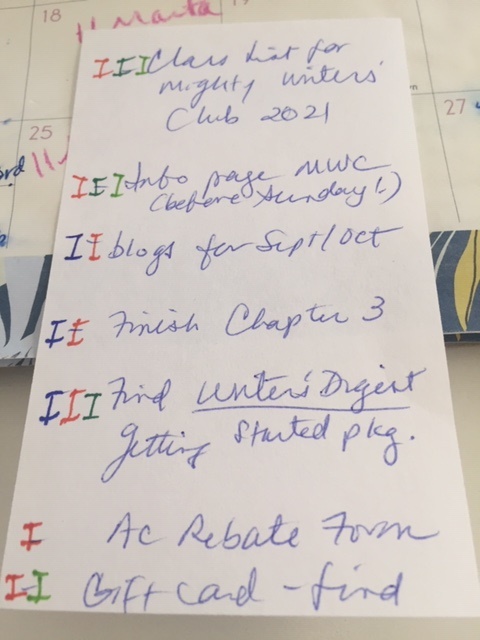 18
11 Marta
III Class List for
Mighty Writers'
Club 2021
27
25
III Info page MWC
(before Sunday!)
II blogs for Sept/Oct
II Finish Chapter 3
III Find Writer's Digest
Getting Started pkg.
I AC Rebate Form
I-I Gift card - find